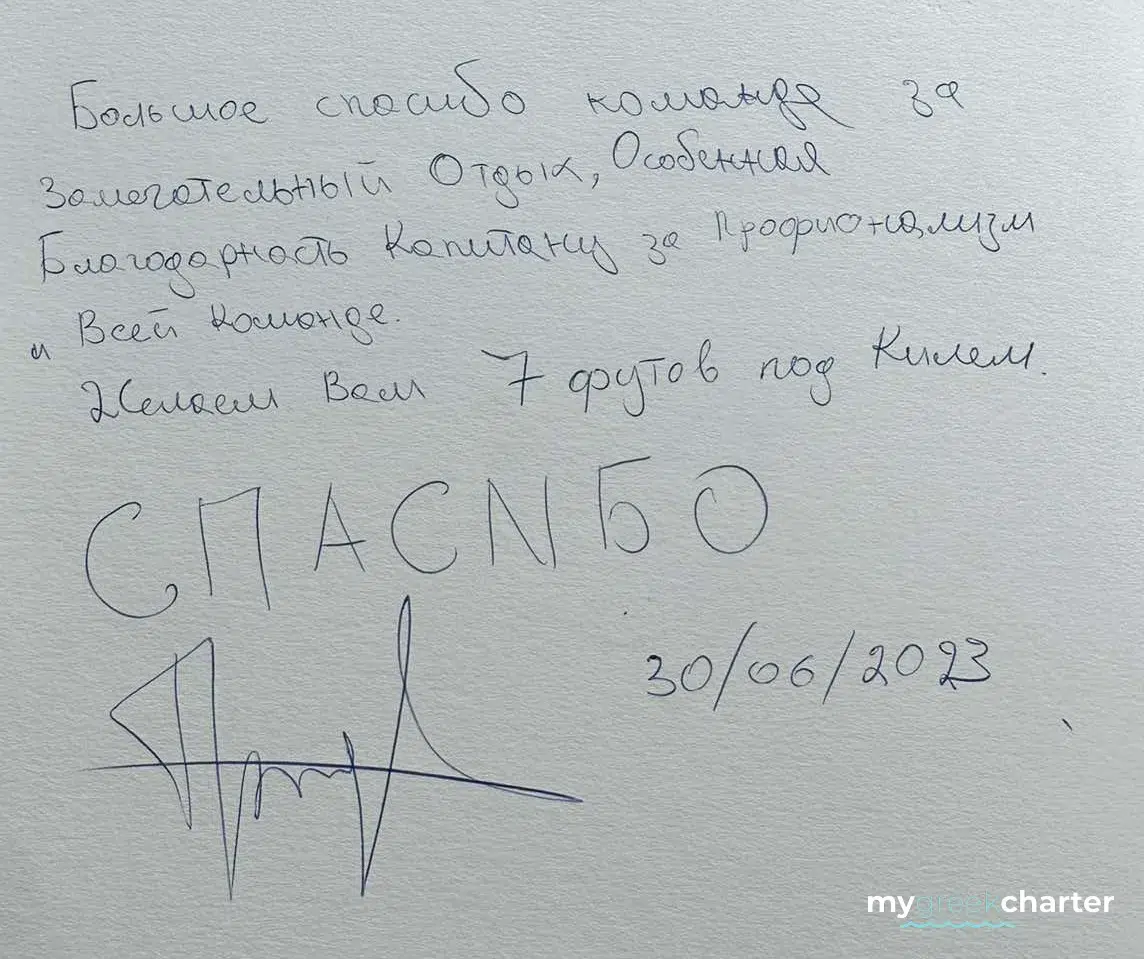 Большое спасибо команде за
Замечательный Отдых, Особенная
Благодарность Капитану за Профионализм
и Всей команде.
Желаем Вам 7 футов под Килем.
СПАСИБО
30/06/2023
mygreekcharter